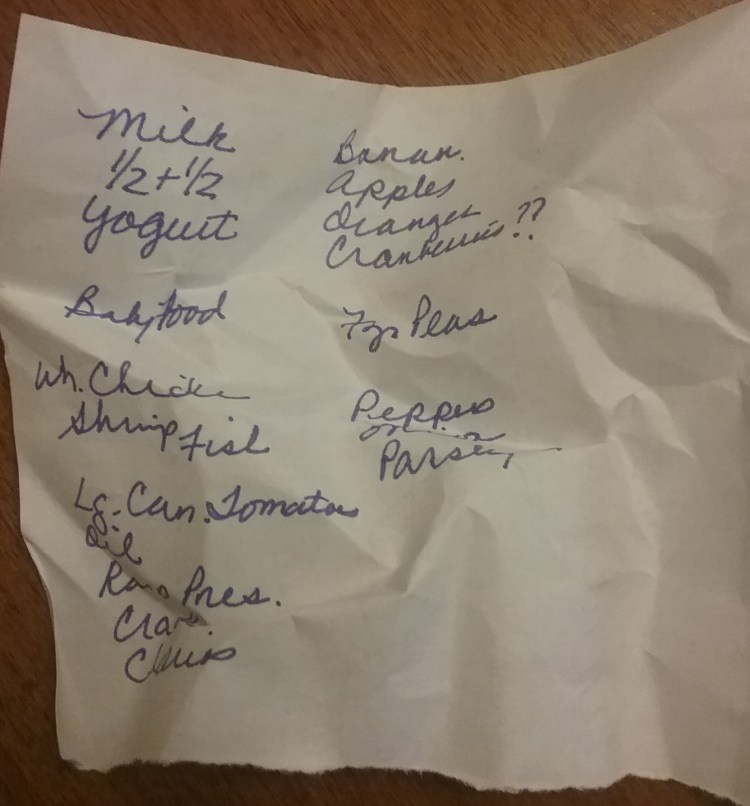 Milk
1/2 + 1/2
Yogurt
Baby food
Wh. Chicken
Shrimp Fish
Lg. Can. Tomatoes
Oil
Pres.
Banan.
Apples
Oranges
Cranberries ??
Frz Peas
Peppers
Parsley